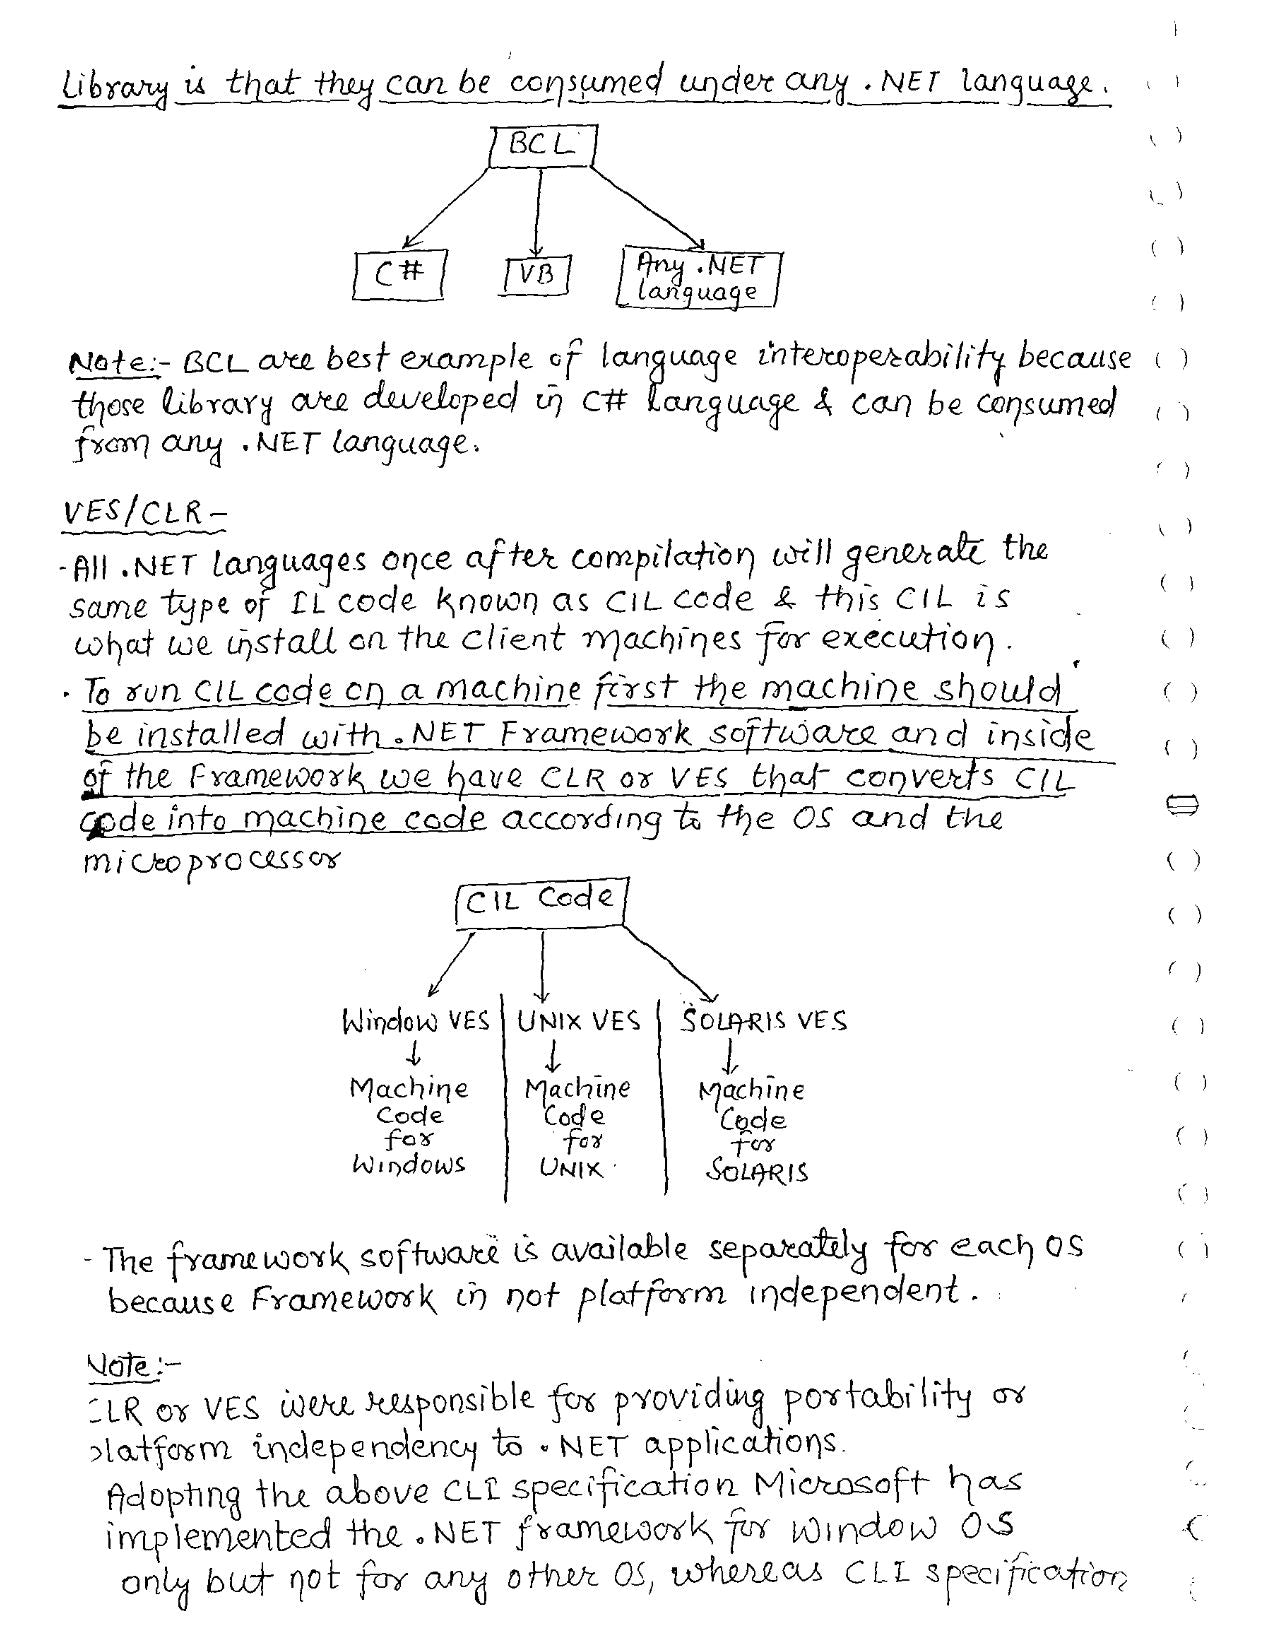 Library is that they can be consumed under any .NET language.
BCL
C#
VB
Any .NET
language
Note:- BCL are best example of language interoperability because
those library are developed in C# language & can be consumed
from any .NET language.
VES/CLR -
- All .NET languages once after compilation will generate the
same type of IL code known as CIL code & this CIL is
what we install on the client machines for execution.
· To run CIL code on a machine first the machine should
be installed with .NET Framework software and inside
of the Framework we have CLR or VES that converts CIL
code into machine code according to the OS and the
microprocessor
CIL Code
Window VES | UNIX VES | SOLARIS VES
Machine Machine Machine
Code Code Code
for for for
Windows UNIX SOLARIS
- The framework software is available separately for each OS
because Framework in not platform independent.
Note:-
CLR or VES were responsible for providing portability or
platform independency to .NET applications.
Adopting the above CLI specification Microsoft has
implemented the .NET framework for Window OS
only but not for any other OS, whereas CLI specification